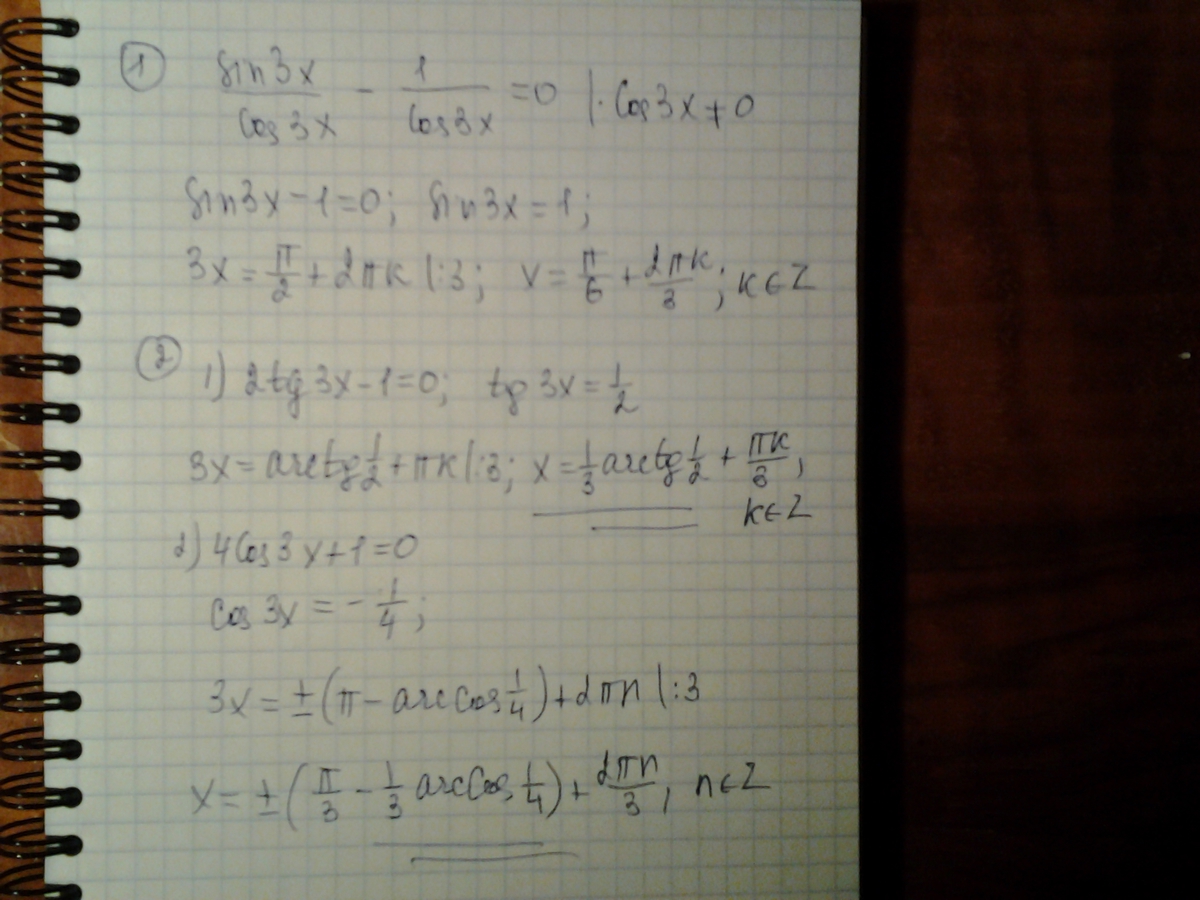 ① sin3x/cos3x - 1/cos3x = 0 |· cos3x ≠ 0
sin3x - 1 = 0; sin3x = 1;
3x = π/2 + 2πk |:3; x = π/6 + 2πk/3; k∈Z
② 1) 2tg3x - 1 = 0; tg3x = 1/2
3x = arctg 1/2 + πk |:3; x = 1/3 arctg 1/2 + πk/3,
k∈Z
2) 4cos3x + 1 = 0
cos3x = -1/4;
3x = ±(π - arccos 1/4) + 2πn |:3
x = ±(π/3 - 1/3 arccos 1/4) + 2πn/3, n∈Z